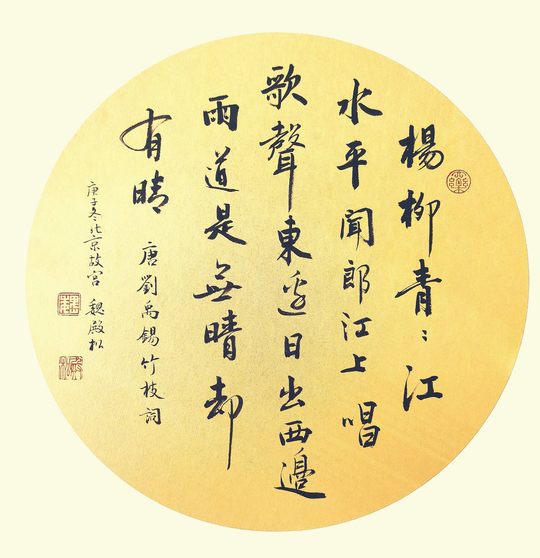 楊柳青〻江
水平聞郎江上唱
歌聲東邊日出西邊
雨道是無晴却
有晴
唐劉禹錫竹枝詞
庚子冬北京故宮 魏殿松